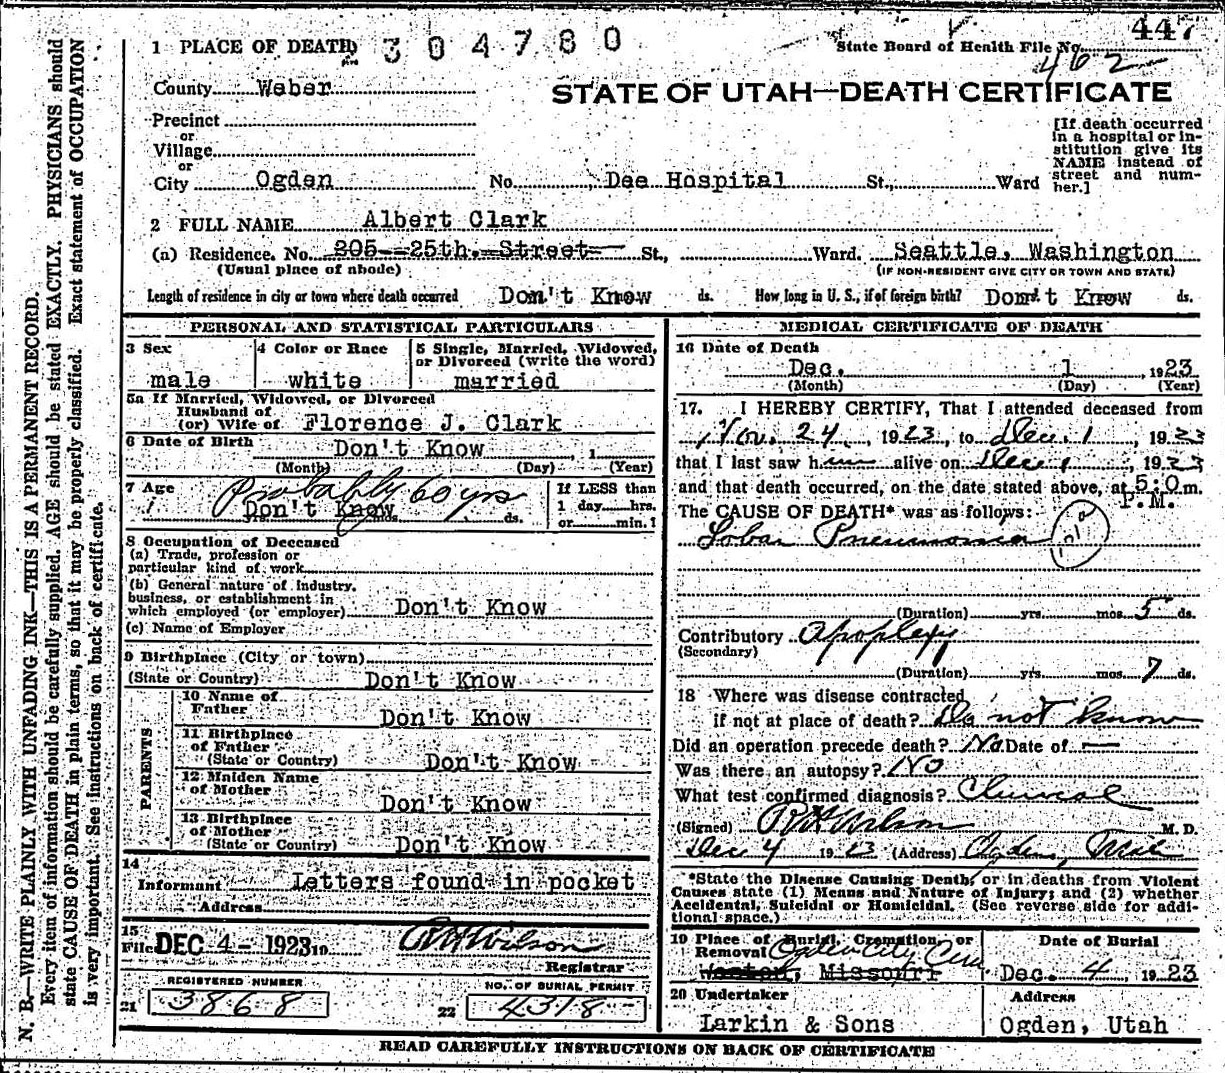 1 PLACE OF DEATH 2304780
State Board of Health File No. 447
462
County Weber
STATE OF UTAH—DEATH CERTIFICATE
Precinct
or
Village
or
City Ogden No. Dee Hospital St., Ward
[If death occurred
in a hospital or in-
stitution give its
NAME instead of
street and num-
ber.]
2 FULL NAME Albert Clark
(a) Residence. No. 205--25th. Street St., Ward. Seattle, Washington
(Usual place of abode) (IF NON-RESIDENT GIVE CITY OR TOWN AND STATE)
Length of residence in city or town where death occurred Don't Know ds. How long in U. S., if of foreign birth? Don't Know ds.
PERSONAL AND STATISTICAL PARTICULARS
3 Sex 4 Color or Race 5 Single, Married, Widowed,
or Divorced (write the word)
male white married
5a If Married, Widowed, or Divorced
Husband of
(or) Wife of Florence J. Clark
6 Date of Birth Don't Know , 1
(Month) (Day) (Year)
7 Age Probably 60 yrs If LESS than
Don't Know 1 day hrs.
yrs. mos. ds. or min. 1
8 Occupation of Deceased
(a) Trade, profession or
particular kind of work
(b) General nature of industry,
business, or establishment in
which employed (or employer) Don't Know
(c) Name of Employer
9 Birthplace (City or town)
(State or Country) Don't Know
PARENTS
10 Name of
Father Don't Know
11 Birthplace
of Father
(State or Country) Don't Know
12 Maiden Name
of Mother Don't Know
13 Birthplace
of Mother
(State or Country) Don't Know
14
Informant Letters found in pocket
Address
15
File DEC 4 - 1923 19 RH Wilson
Registrar
REGISTERED NUMBER NO. OF BURIAL PERMIT
21 3868 22 4318
MEDICAL CERTIFICATE OF DEATH
16 Date of Death
Dec. 1 , 1923
(Month) (Day) (Year)
17. I HEREBY CERTIFY, That I attended deceased from
Nov. 24 , 1923, to Dec. 1 , 1923
that I last saw him alive on Dec 1 , 1923
and that death occurred, on the date stated above, at 5:0 m.
P.M.
The CAUSE OF DEATH* was as follows:
Lobar Pneumonia 101a
(Duration) yrs. mos. 5 ds.
Contributory Apoplexy
(Secondary)
(Duration) yrs. mos. 7 ds.
18 Where was disease contracted
if not at place of death? Do not know
Did an operation precede death? No Date of —
Was there an autopsy? No
What test confirmed diagnosis? Clinical
(Signed) RH Wilson M. D.
Dec 4 1923 (Address) Ogden, Utah
*State the Disease Causing Death, or in deaths from Violent
Causes state (1) Means and Nature of Injury; and (2) whether
Accidental, Suicidal or Homicidal. (See reverse side for addi-
tional space.)
19 Place of Burial, Cremation, or Date of Burial
Removal Ogden City Cem
Weston, Missouri Dec. 4 1923
20 Undertaker Address
Larkin & Sons Ogden, Utah
READ CAREFULLY INSTRUCTIONS ON BACK OF CERTIFICATE
N. B.—WRITE PLAINLY WITH UNFADING INK—THIS IS A PERMANENT RECORD.
Every item of information should be carefully supplied. AGE should be stated EXACTLY. PHYSICIANS should
state CAUSE OF DEATH in plain terms, so that it may be properly classified. Exact statement of OCCUPATION
is very important. See instructions on back of certificate.